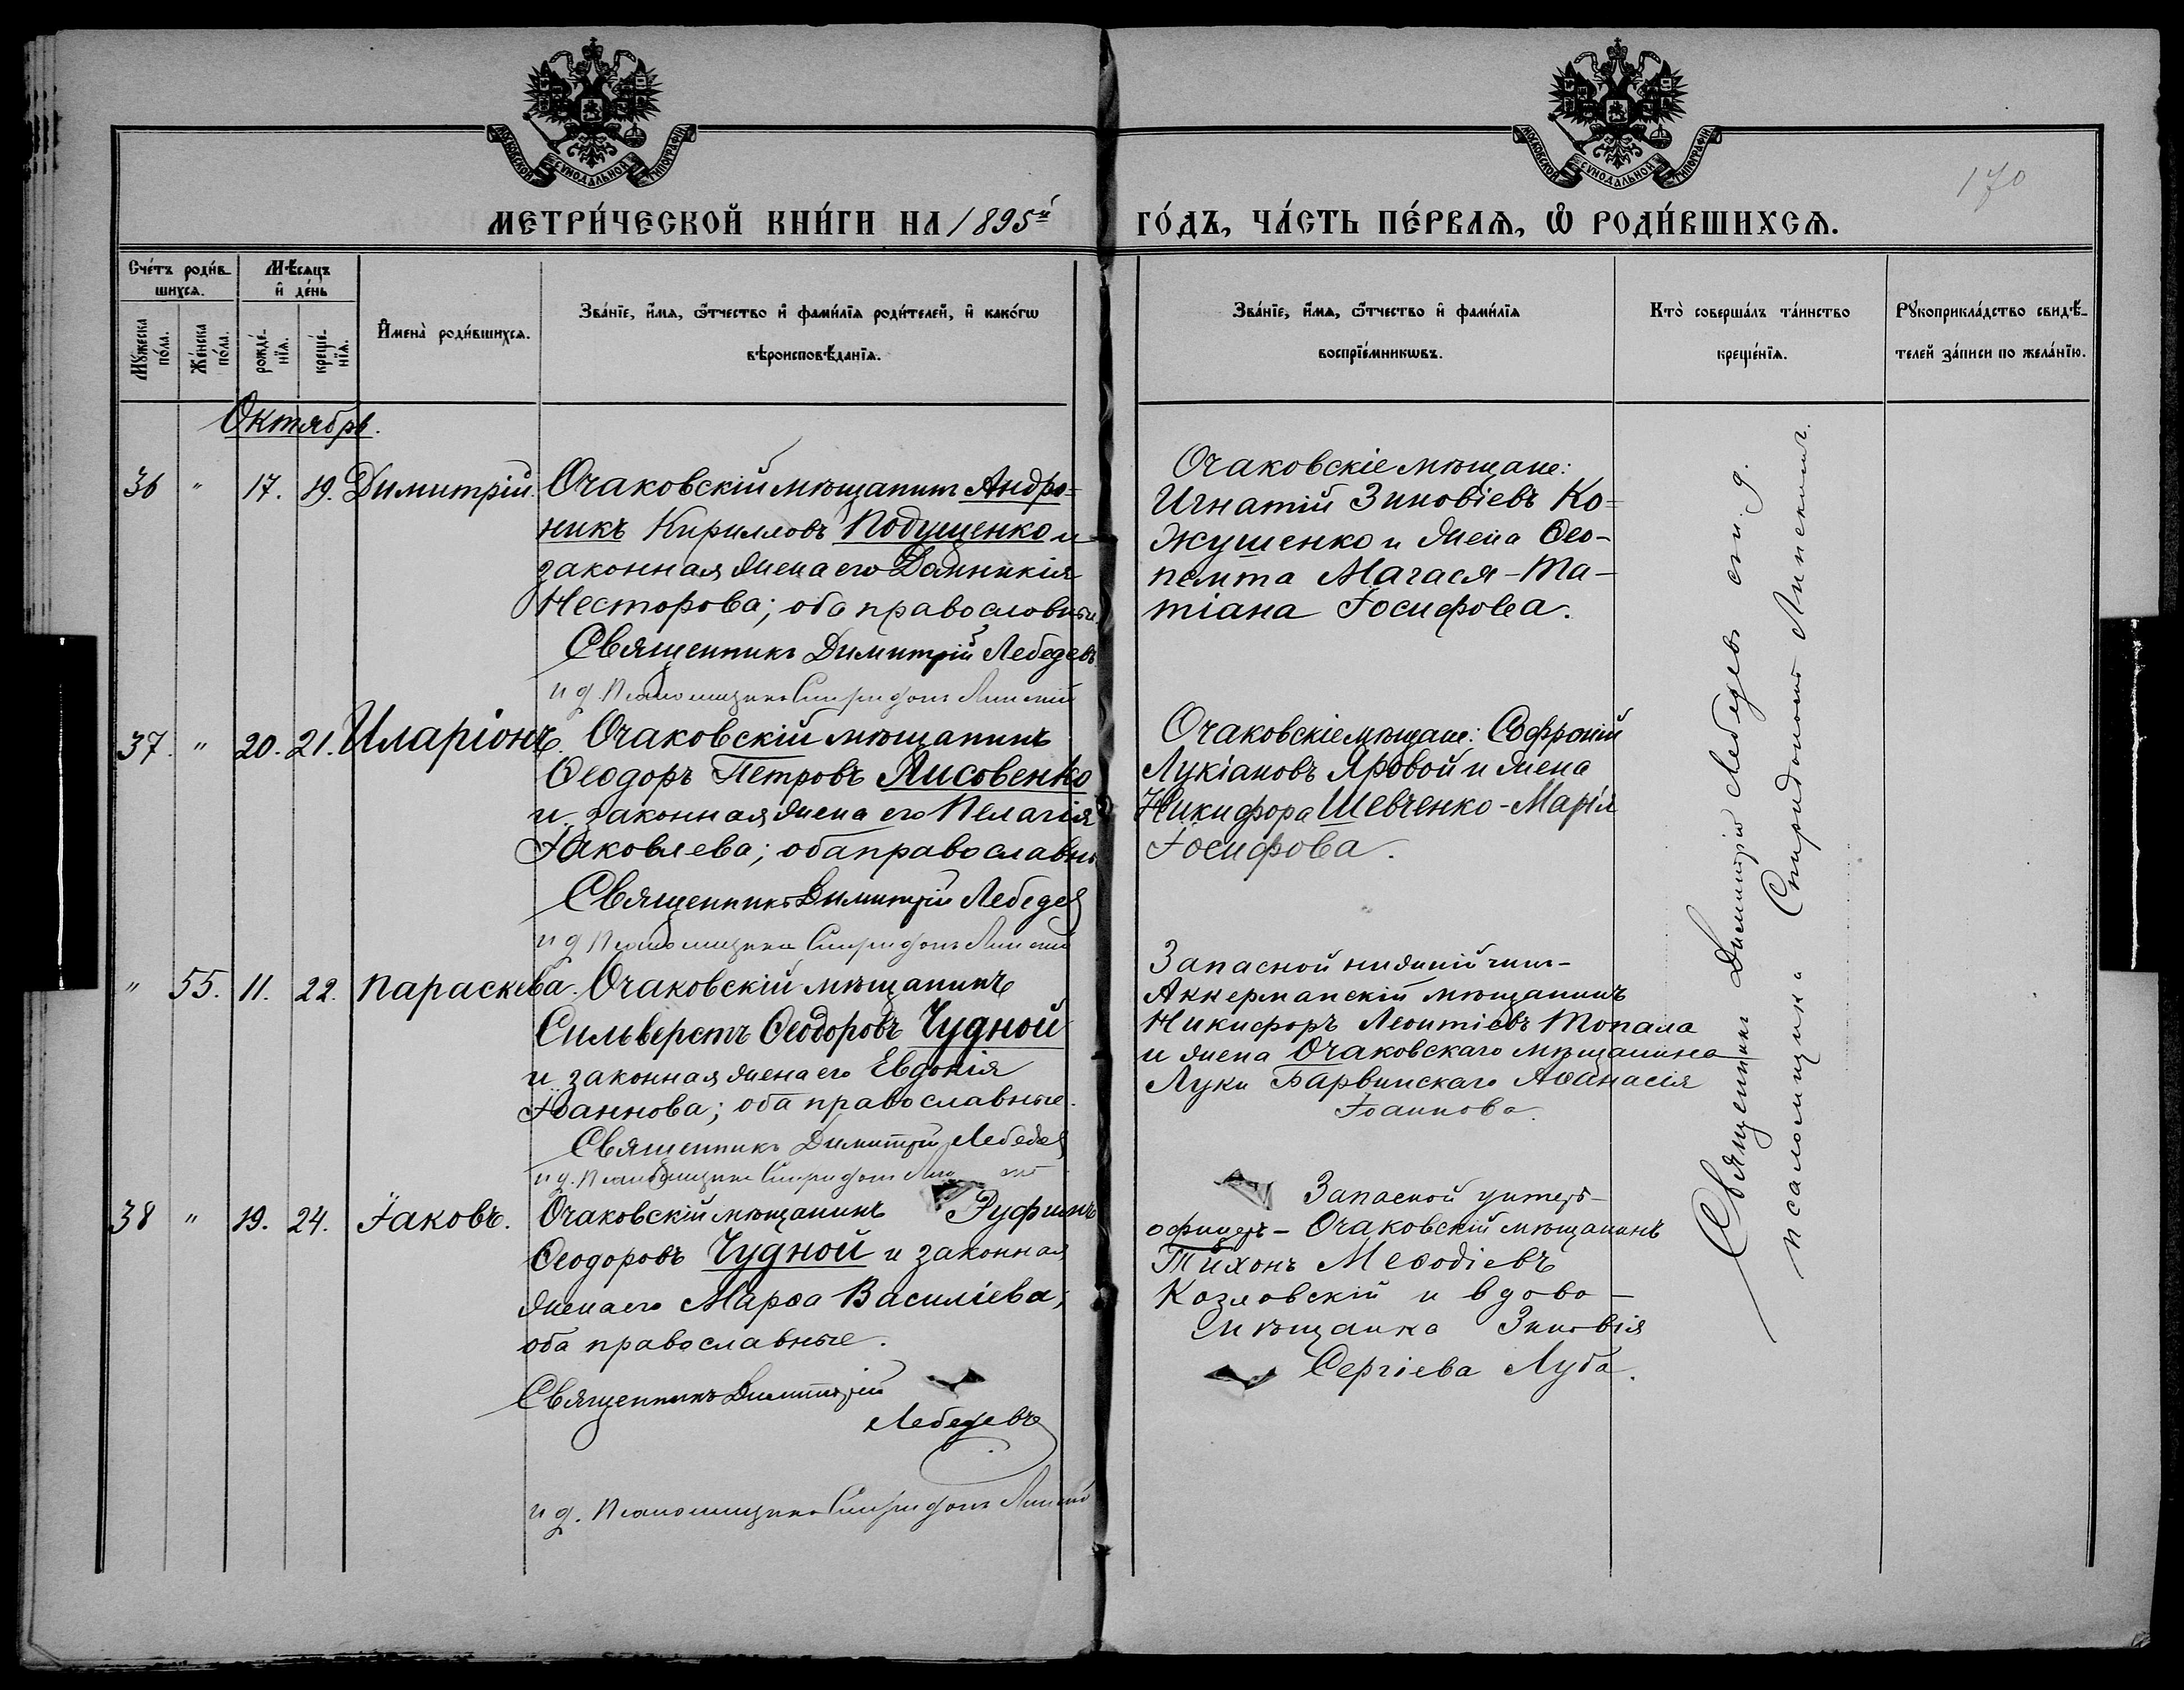 МОСКОВСКОЙ СѴНОДАЛЬНОЙ ТИПОГРАФІИ
МОСКОВСКОЙ СѴНОДАЛЬНОЙ ТИПОГРАФІИ
170
МЕТРИ́ЧЕСКОЙ КНИ́ГИ НА 1895й ГО́ДЪ, ЧА́СТЬ ПЕ́РВАѦ, Ѡ҆ РОДИ́ВШИХСѦ.
Сче́тъ роди́в-
шихсѧ.
Мѣ́сѧцъ
и҆ де́нь
Мꙋ́жеска
по́ла.
Же́нска
по́ла.
рожде́-
нїѧ.
креще́-
нїѧ.
И҆мена̀ роди́вшихсѧ.
Зва́нїе, и҆́мѧ, ѻ҆́тчество и҆ фами́лїѧ роди́телей, и҆ како́гѡ
вѣроисповѣ́данїѧ.
Зва́нїе, и҆́мѧ, ѻ҆́тчество и҆ фами́лїѧ
воспрїе́мникѡвъ.
Кто̀ соверша́лъ та́инство
креще́нїѧ.
Рꙋкоприкла́дство свидѣ́-
телей за́писи по жела́нїю.
Октябрь.
36 " 17. 19. Димитрій.
Очаковскій мѣщанинъ Андро=
никъ Кирилловъ Подущенко и
законная жена его Домникія
Несторова; оба православные.
Священникъ Димитрій Лебедевъ
и д. Псаломщика Спиридонъ Липскій
Очаковскіе мѣщане:
Игнатій Зиновіевъ Ко=
жушенко и жена Ѳео-
пемта Магася - Та-
тіана Іосифова.
37. " 20. 21. Иларіонъ.
Очаковскій мѣщанинъ
Ѳеодоръ Петровъ Лисовенко
и законная жена его Пелагія
Іаковлева; оба православны
Священникъ Димитрій Лебедев
и д Псаломщика Спиридонъ Липскій
Очаковскіе мѣщане: Софроній
Лукіановъ Яровой и жена
Никифора Шевченко - Марія
Іосифова.
" 55. 11. 22. Параскева.
Очаковскій мѣщанинъ
Сильверстъ Ѳеодоровъ Чудной
и законная жена его Евдокія
Іоаннова; оба православные.
Священникъ Димитрій Лебедев
и д. Псаломщика Спиридонъ
Запасной нижній чинъ -
Аккерманскій мѣщанинъ
Никифоръ Леонтіевъ Топала
и жена Очаковскаго мѣщанина
Луки Барвинскаго Аѳанасія
Іоаннова.
38 " 19. 24. Іаковъ.
Очаковскій мѣщанинъ Руфимъ
Ѳеодоровъ Чудной и законная
жена его Марѳа Василіева;
оба православные.
Священникъ Димитрій
Лебедевъ
и д. Псаломщика Спиридонъ Липскій
Запасной унтеръ-
офицеръ - Очаковскій мѣщанинъ
Тихонъ Меѳодіевъ
Козловскій и вдова -
мѣщанка Зиновія
Сергіева Луба.
Священникъ Димитрій Лебедевъ съ и. д.
псаломщика Спиридономъ Липскимъ.